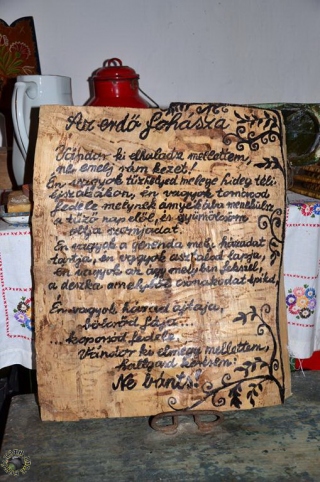 Az erdő fohásza
Vándor ki elhaladsz mellettem,
ne emelj rám kezet!
Én vagyok tűzhelyed melege hideg téli
éjszakákon, én vagyok tornácod
fedele melynek árnyékába menekülsz
a tűző nap elől, és gyümölcsöm
oltja szomjadat.
Én vagyok a gerenda mely házadat
tartja, én vagyok asztalod lapja,
én vagyok az ágy melyben fekszel,
a deszka amelyből csónakodat építed,
Én vagyok házad ajtaja,
bölcsőd fája...
...koporsód fedele.
Vándor ki elmész mellettem,
hallgasd kérésem!
Ne bánts..